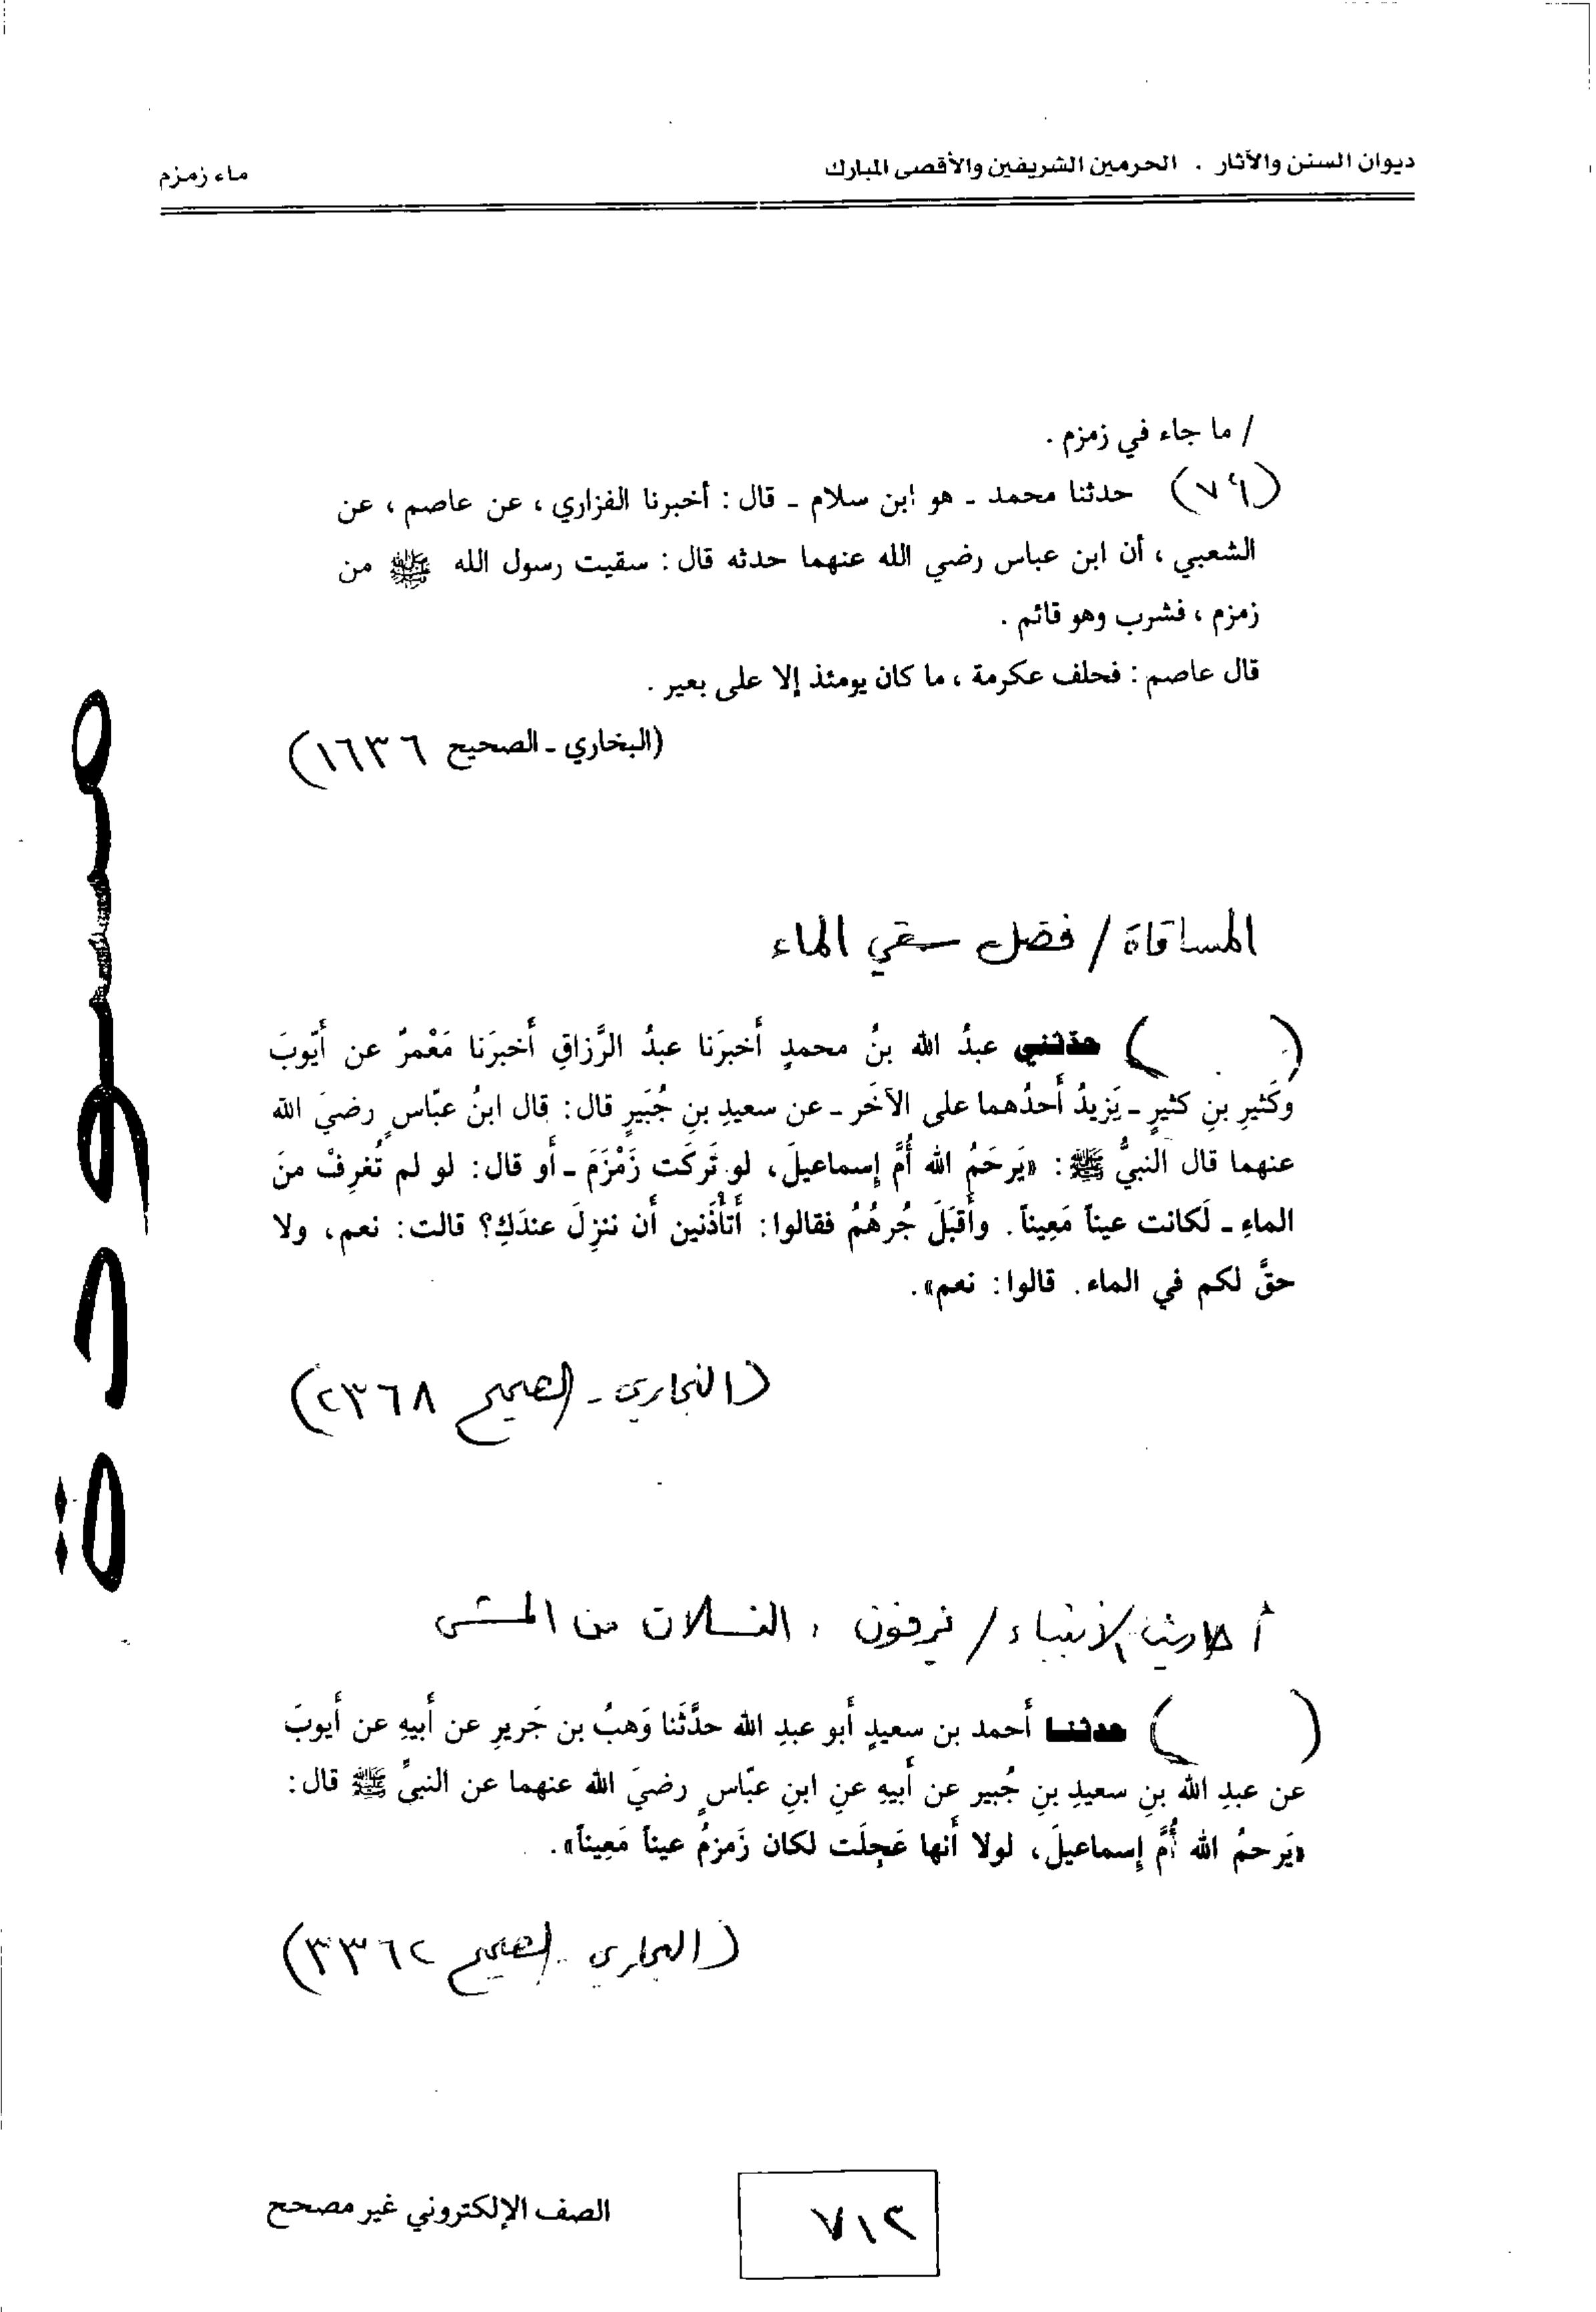 ديوان السنن والآثار . الحرمين الشريفين والأقصى المبارك
ماء زمزم
/ ما جاء في زمزم .
(٧٦) حدثنا محمد ـ هو ابن سلام ـ قال : أخبرنا الفزاري ، عن عاصم ، عن
الشعبي ، أن ابن عباس رضي الله عنهما حدثه قال : سقيت رسول الله ﷺ من
زمزم ، فشرب وهو قائم .
قال عاصم : فحلف عكرمة ، ما كان يومئذ إلا على بعير .
(البخاري ـ الصحيح ١٦٣٦)
المساقاة / فضل سقي الماء
( ) حدّثني عبدُ الله بنُ محمدٍ أَخبرَنا عبدُ الرَّزاقِ أَخبرَنا مَعْمرٌ عن أَيّوبَ
وَكَثيرِ بنِ كثيرٍ ـ يَزيدُ أَحدُهما على الآخَر ـ عن سعيدِ بنِ جُبَيرٍ قال: قال ابنُ عبّاسٍ رضيَ الله
عنهما قال النبيُّ ﷺ: «يَرحَمُ الله أُمَّ إسماعيلَ، لو تَركَت زَمْزَمَ ـ أَو قال: لو لم تُغرِفْ منَ
الماءِ ـ لَكانت عيناً مَعِيناً. وأَقبَلَ جُرهُمُ فقالوا: أَتأْذَنين أَن ننزِلَ عندَكِ؟ قالت: نعم، ولا
حقَّ لكم في الماء. قالوا: نعم».
(البخاري ـ الصحيح ٢٣٦٨)
أحاديث الأنبياء / يزفون ، النسلان من المشي
( ) حدثنا أَحمد بن سعيدٍ أَبو عبدِ الله حدَّثَنا وَهبُ بن جَريرِ عن أَبيهِ عن أَيوبَ
عن عبدِ الله بنِ سعيدِ بنِ جُبير عن أَبيهِ عنِ ابنِ عبّاسٍ رضيَ الله عنهما عن النبيِّ ﷺ قال:
«يَرحمُ الله أُمَّ إسماعيلَ، لولا أَنها عَجِلَت لكان زَمزمُ عيناً مَعِيناً».
(البخاري ـ الصحيح ٣٣٦٢)
مسودة
٧١٢
الصف الإلكتروني غير مصحح